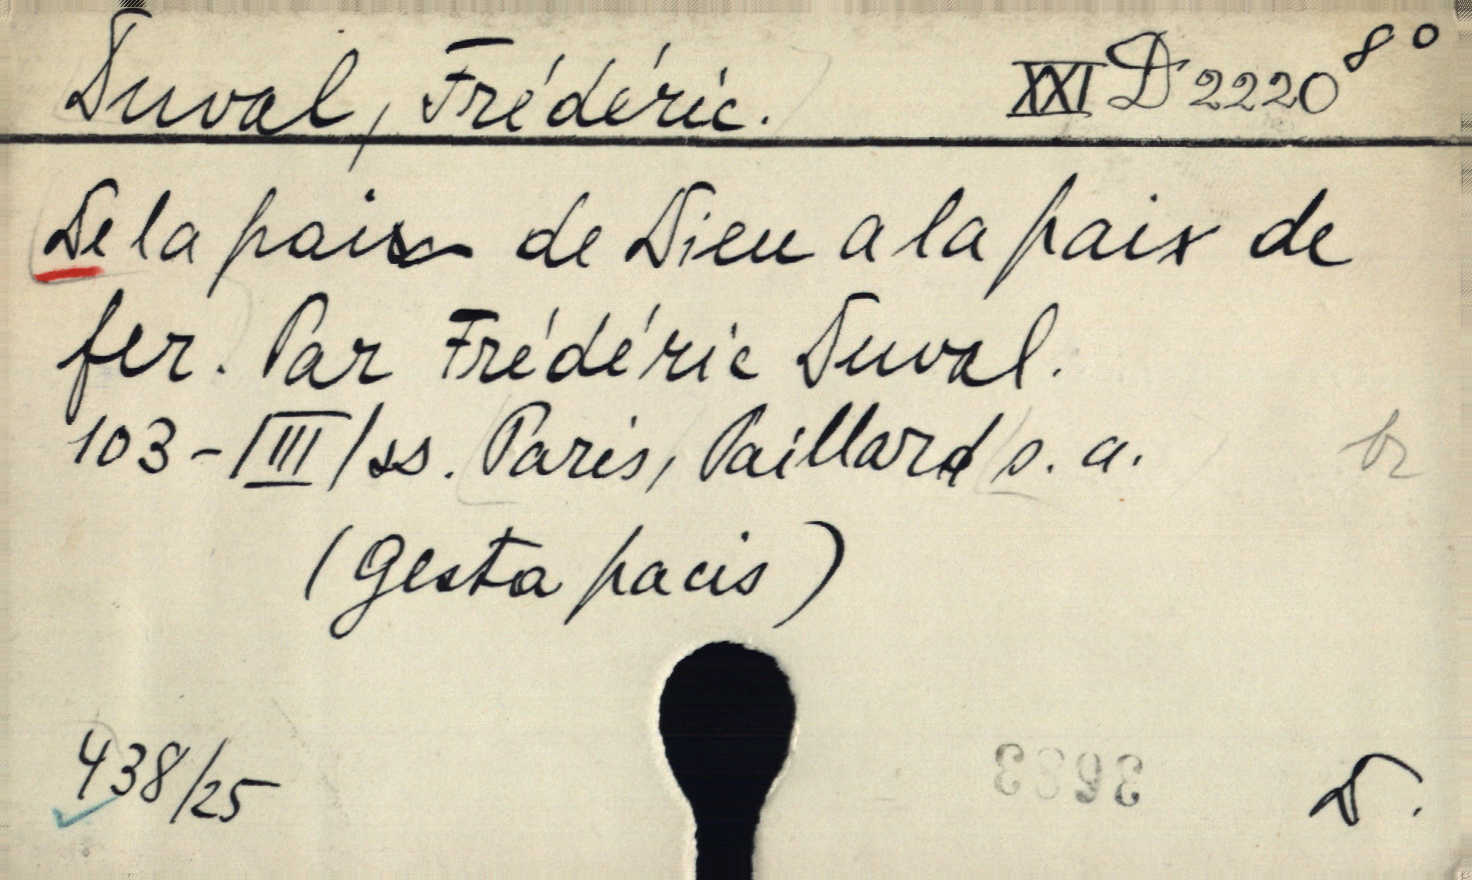 Duval, Frédéric. XXI D 2220 8°
De la paix de Dieu a la paix de
fer. Par Frédéric Duval.
103-/III/ss. Paris, Paillard s. a.
br
(Gesta pacis)
438/25
D.